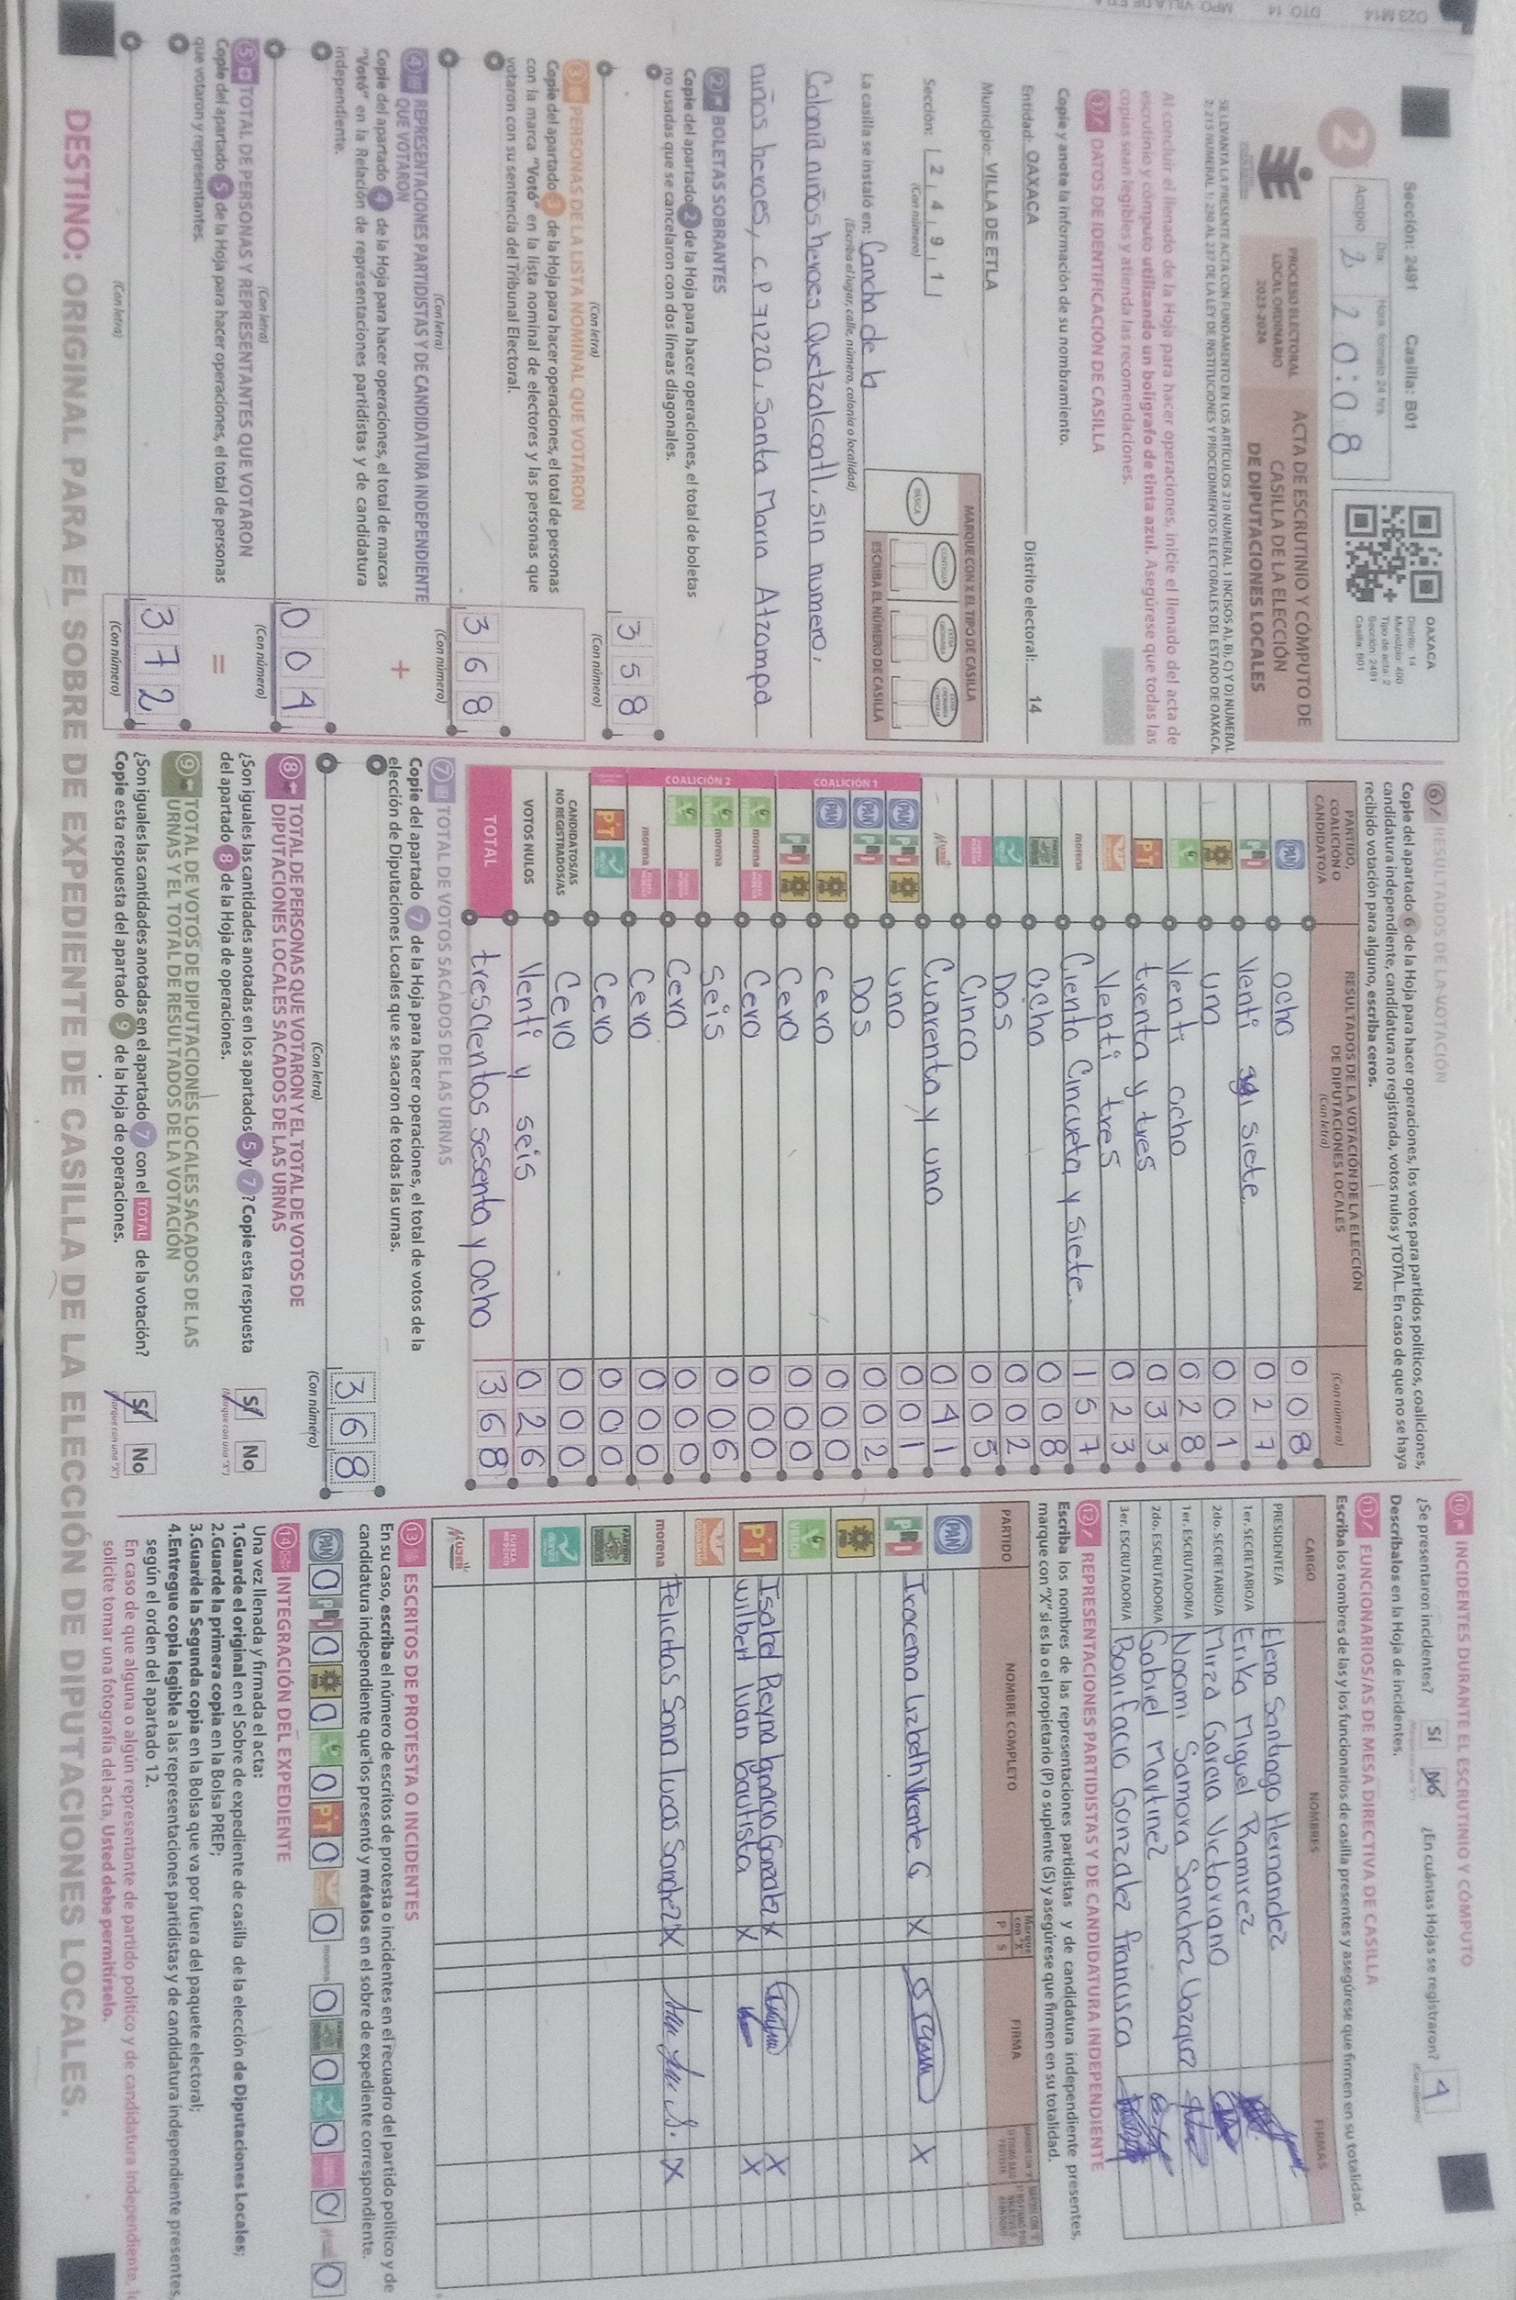 Sección: 2491 Casilla: B01
2
Acopio
Día
Hora formato 24 hrs
2 20:08
OAXACA
Distrito: 14
Municipio: 400
Tipo de acta: 2
Sección: 2491
Casilla: B01
PROCESO ELECTORAL
LOCAL ORDINARIO
2023-2024
ACTA DE ESCRUTINIO Y CÓMPUTO DE
CASILLA DE LA ELECCIÓN
DE DIPUTACIONES LOCALES
SE LEVANTA LA PRESENTE ACTA CON FUNDAMENTO EN LOS ARTÍCULOS 210 NUMERAL 1 INCISOS A), B), C) Y D) NUMERAL
2; 215 NUMERAL 1; 230 AL 237 DE LA LEY DE INSTITUCIONES Y PROCEDIMIENTOS ELECTORALES DEL ESTADO DE OAXACA.
Al concluir el llenado de la Hoja para hacer operaciones, inicie el llenado del acta de
escrutinio y cómputo utilizando un bolígrafo de tinta azul. Asegúrese que todas las
copias sean legibles y atienda las recomendaciones.
1 DATOS DE IDENTIFICACIÓN DE CASILLA
Copie y anote la información de su nombramiento.
Entidad: OAXACA Distrito electoral: 14
Municipio: VILLA DE ETLA
Sección: 2 4 9 1
(Con número)
MARQUE CON X EL TIPO DE CASILLA
BÁSICA
CONTIGUA
ESCRIBA EL NÚMERO DE CASILLA
La casilla se instaló en: Cancha de la
(Escriba el lugar, calle, número, colonia o localidad)
Colonia niños heroes Quetzalcoatl, sin numero,
niños heroes, C.P 71220, Santa Maria Atzompa
2 BOLETAS SOBRANTES
Copie del apartado 2 de la Hoja para hacer operaciones, el total de boletas
no usadas que se cancelaron con dos líneas diagonales.
358
(Con letra) (Con número)
3 PERSONAS DE LA LISTA NOMINAL QUE VOTARON
Copie del apartado 3 de la Hoja para hacer operaciones, el total de personas
con la marca "Votó" en la lista nominal de electores y las personas que
votaron con su sentencia del Tribunal Electoral.
368
(Con letra) (Con número)
4 REPRESENTACIONES PARTIDISTAS Y DE CANDIDATURA INDEPENDIENTE
QUE VOTARON
+
Copie del apartado 4 de la Hoja para hacer operaciones, el total de marcas
"Votó" en la Relación de representaciones partidistas y de candidatura
independiente.
004
(Con letra) (Con número)
5 TOTAL DE PERSONAS Y REPRESENTANTES QUE VOTARON
=
Copie del apartado 5 de la Hoja para hacer operaciones, el total de personas
que votaron y representantes.
372
(Con letra) (Con número)
6 RESULTADOS DE LA VOTACIÓN
Copie del apartado 6 de la Hoja para hacer operaciones, los votos para partidos políticos, coaliciones,
candidatura independiente, candidatura no registrada, votos nulos y TOTAL. En caso de que no se haya
recibido votación para alguno, escriba ceros.
PARTIDO,
COALICIÓN O
CANDIDATO/A
RESULTADOS DE LA VOTACIÓN DE LA ELECCIÓN
DE DIPUTACIONES LOCALES
(Con letra)
(Con número)
PAN ocho 008
PRI Venti y siete 027
PRD uno 001
Venti ocho 028
PT trenta y tres 033
Venti tres 023
morena Ciento Cincueta y siete. 157
Ocho 008
Dos 002
Cinco 005
Cuarenta y uno 041
COALICIÓN 1
PAN PRI PRD Uno 001
PAN PRI Dos 002
PAN PRD Cero 000
PRI PRD Cero 000
COALICIÓN 2
morena Cero 000
morena Seis 006
Cero 000
morena Cero 000
PT Cero 000
CANDIDATOS/AS
NO REGISTRADOS/AS Cero 000
VOTOS NULOS Venti y seis 026
TOTAL trescientos sesenta y ocho 368
7 TOTAL DE VOTOS SACADOS DE LAS URNAS
Copie del apartado 7 de la Hoja para hacer operaciones, el total de votos de la
elección de Diputaciones Locales que se sacaron de todas las urnas.
368
(Con letra) (Con número)
8 TOTAL DE PERSONAS QUE VOTARON Y EL TOTAL DE VOTOS DE
DIPUTACIONES LOCALES SACADOS DE LAS URNAS
¿Son iguales las cantidades anotadas en los apartados 5 y 7? Copie esta respuesta
del apartado 8 de la Hoja de operaciones.
Sí No
(Marque con una "X")
9 TOTAL DE VOTOS DE DIPUTACIONES LOCALES SACADOS DE LAS
URNAS Y EL TOTAL DE RESULTADOS DE LA VOTACIÓN
¿Son iguales las cantidades anotadas en el apartado 7 con el TOTAL de la votación?
Copie esta respuesta del apartado 9 de la Hoja de operaciones.
Sí No
(Marque con una "X")
10 INCIDENTES DURANTE EL ESCRUTINIO Y CÓMPUTO
¿Se presentaron incidentes? Sí No ¿En cuántas Hojas se registraron? 4
Descríbalos en la Hoja de incidentes.
11 FUNCIONARIOS/AS DE MESA DIRECTIVA DE CASILLA
Escriba los nombres de las y los funcionarios de casilla presentes y asegúrese que firmen en su totalidad.
CARGO NOMBRES FIRMAS
PRESIDENTE/A Elena Santiago Hernandez
1er. SECRETARIO/A Erika Miguel Ramirez
2do. SECRETARIO/A Mirza Garcia Victoriano
1er. ESCRUTADOR/A Naomi Samora Sanchez Vazquez
2do. ESCRUTADOR/A Gabriel Martinez
3er. ESCRUTADOR/A Bonifacio Gonzalez francisca
12 REPRESENTACIONES PARTIDISTAS Y DE CANDIDATURA INDEPENDIENTE
Escriba los nombres de las representaciones partidistas y de candidatura independiente presentes,
marque con "X" si es la o el propietario (P) o suplente (S) y asegúrese que firmen en su totalidad.
PARTIDO NOMBRE COMPLETO Marque con "X" P S FIRMA
PAN
PRI Iracema Lizbeth Vicente G X X
PRD
VERDE
PT Isabel Reyna Ignacio Gonzalez X X
Wilbert Ivan Bautista X X
morena Felicitas Sonia Lucas Sanchez X X
13 ESCRITOS DE PROTESTA O INCIDENTES
En su caso, escriba el número de escritos de protesta o incidentes en el recuadro del partido político y de
candidatura independiente que los presentó y métalos en el sobre de expediente correspondiente.
PAN 0 PRI 0 PRD 0 0 PT 0 0 morena 0 0 0 0 0
14 INTEGRACIÓN DEL EXPEDIENTE
Una vez llenada y firmada el acta:
1.Guarde el original en el Sobre de expediente de casilla de la elección de Diputaciones Locales;
2.Guarde la primera copia en la Bolsa PREP;
3.Guarde la Segunda copia en la Bolsa que va por fuera del paquete electoral;
4.Entregue copia legible a las representaciones partidistas y de candidatura independiente presentes,
según el orden del apartado 12.
En caso de que alguna o algún representante de partido político y de candidatura independiente, le
solicite tomar una fotografía del acta, Usted debe permitírselo.
DESTINO: ORIGINAL PARA EL SOBRE DE EXPEDIENTE DE CASILLA DE LA ELECCIÓN DE DIPUTACIONES LOCALES.